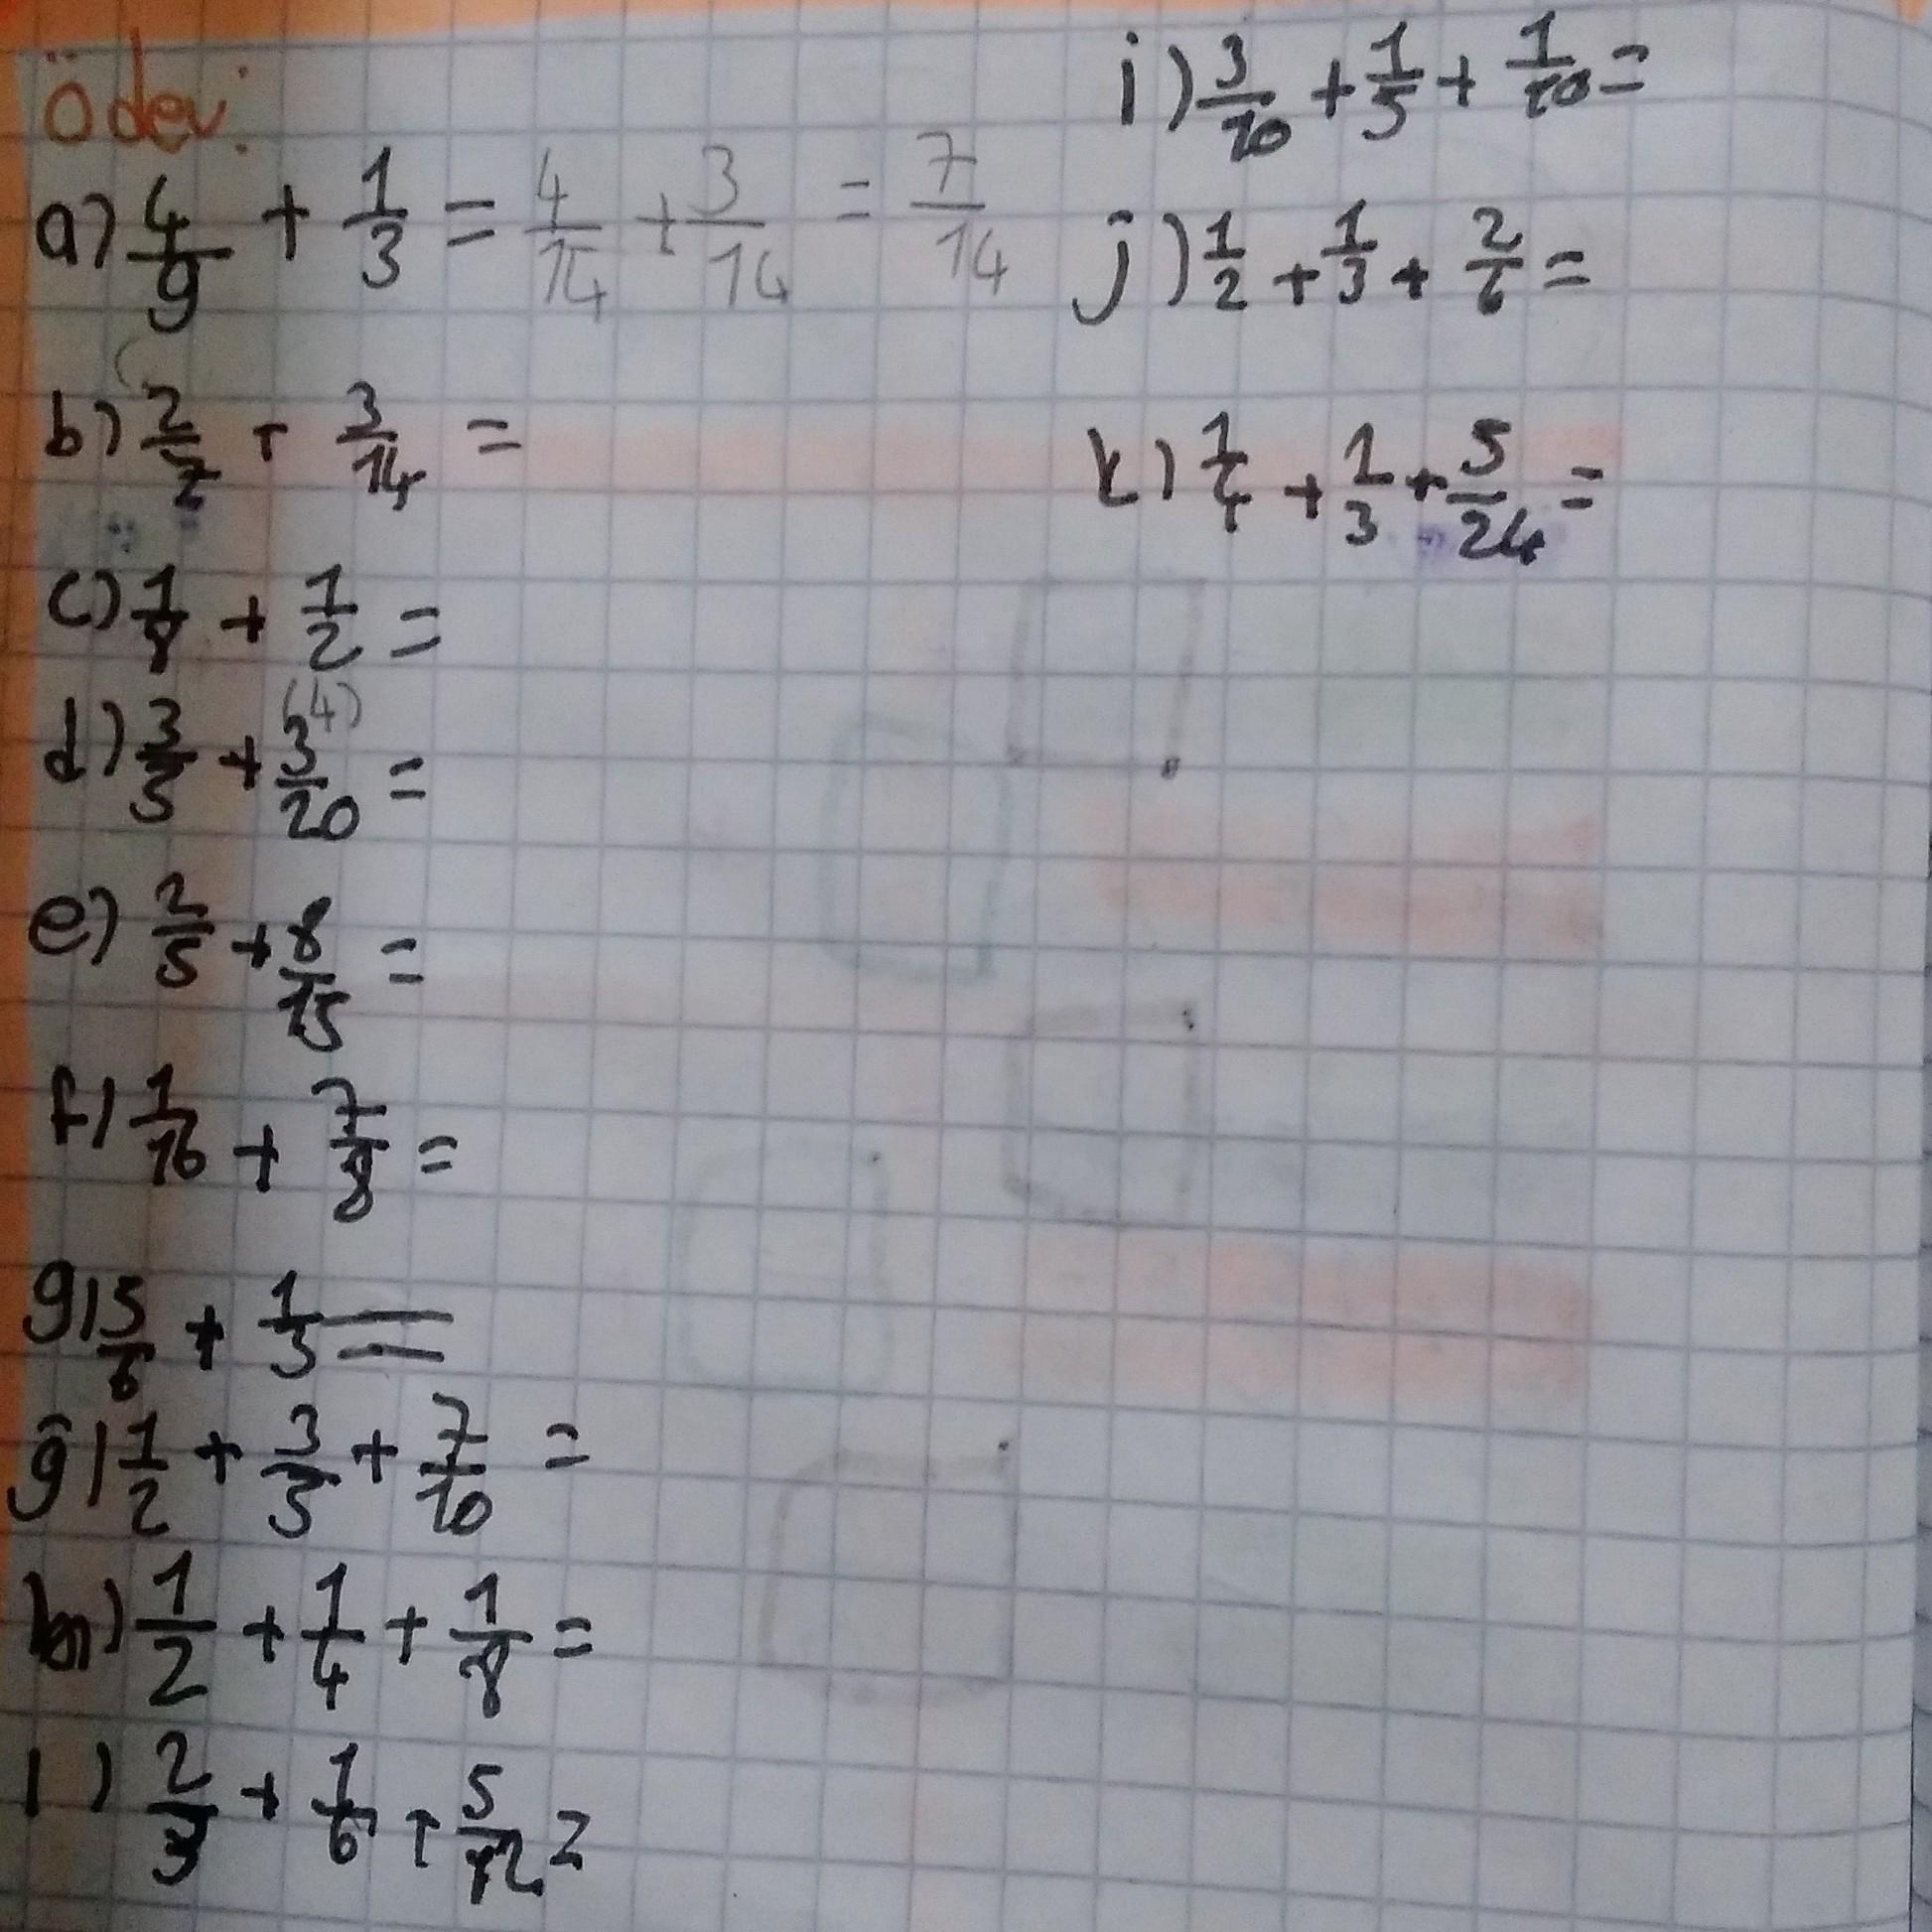 Ödev:
a) 4/9 + 1/3 = 4/14 + 3/14 = 7/14
b) 2/7 + 3/14 =
c) 1/8 + 1/2 =
(4)
d) 3/5 + 3/20 =
e) 2/5 + 8/15 =
f) 1/16 + 7/8 =
g) 5/6 + 1/3 =
ğ) 1/2 + 3/5 + 7/10 =
h) 1/2 + 1/4 + 1/8 =
ı) 2/3 + 1/6 + 5/12 =
i) 3/10 + 1/5 + 1/10 =
j) 1/2 + 1/3 + 2/6 =
k) 1/4 + 1/3 + 5/24 =